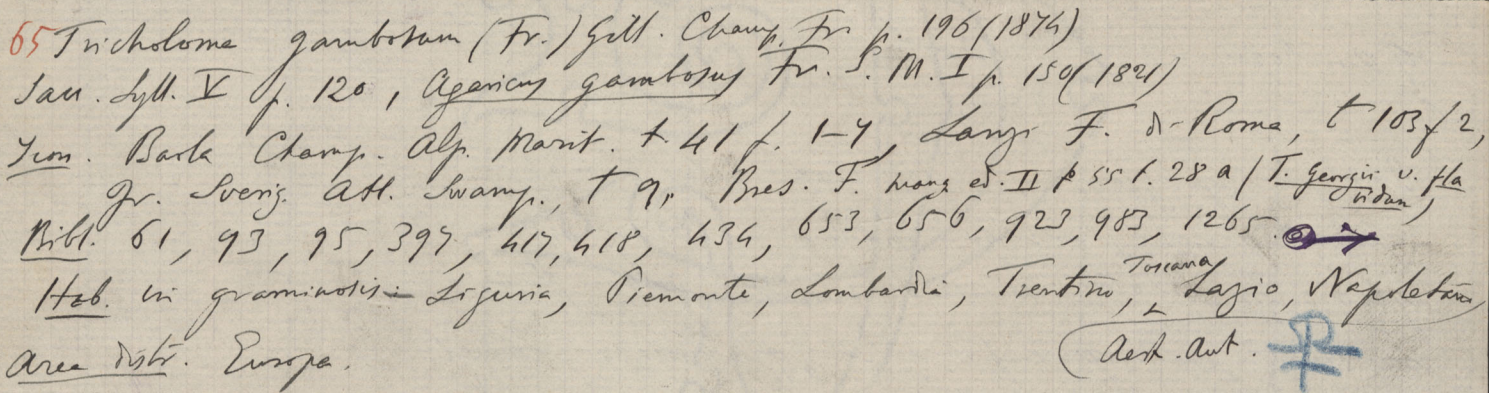 65 Tricholoma gambosum (Fr.) Gill. Champ. Fr. p. 196 (1874)
Sacc. Syll. V p. 120, Agaricus gambosus Fr. S. M. I p. 150 (1821)
Icon. Barla Champ. Alp. Marit. t. 41 f. 1-4, Lanzi F. di Roma, t 103 f 2,
Fr. Sverig. Atl. Swamp., t 9, Bres. F. mang. ed. II p 55 t. 28 a (T. Georgii v.
Bibl. 61, 93, 95, 397, 417, 418, 434, 653, 656, 923, 983, 1265.
Hab. in graminosis - Liguria, Piemonte, Lombardia, Trentino, Toscana, Lazio, Napoletano,
Aest. Aut.
Area distr. Europa.